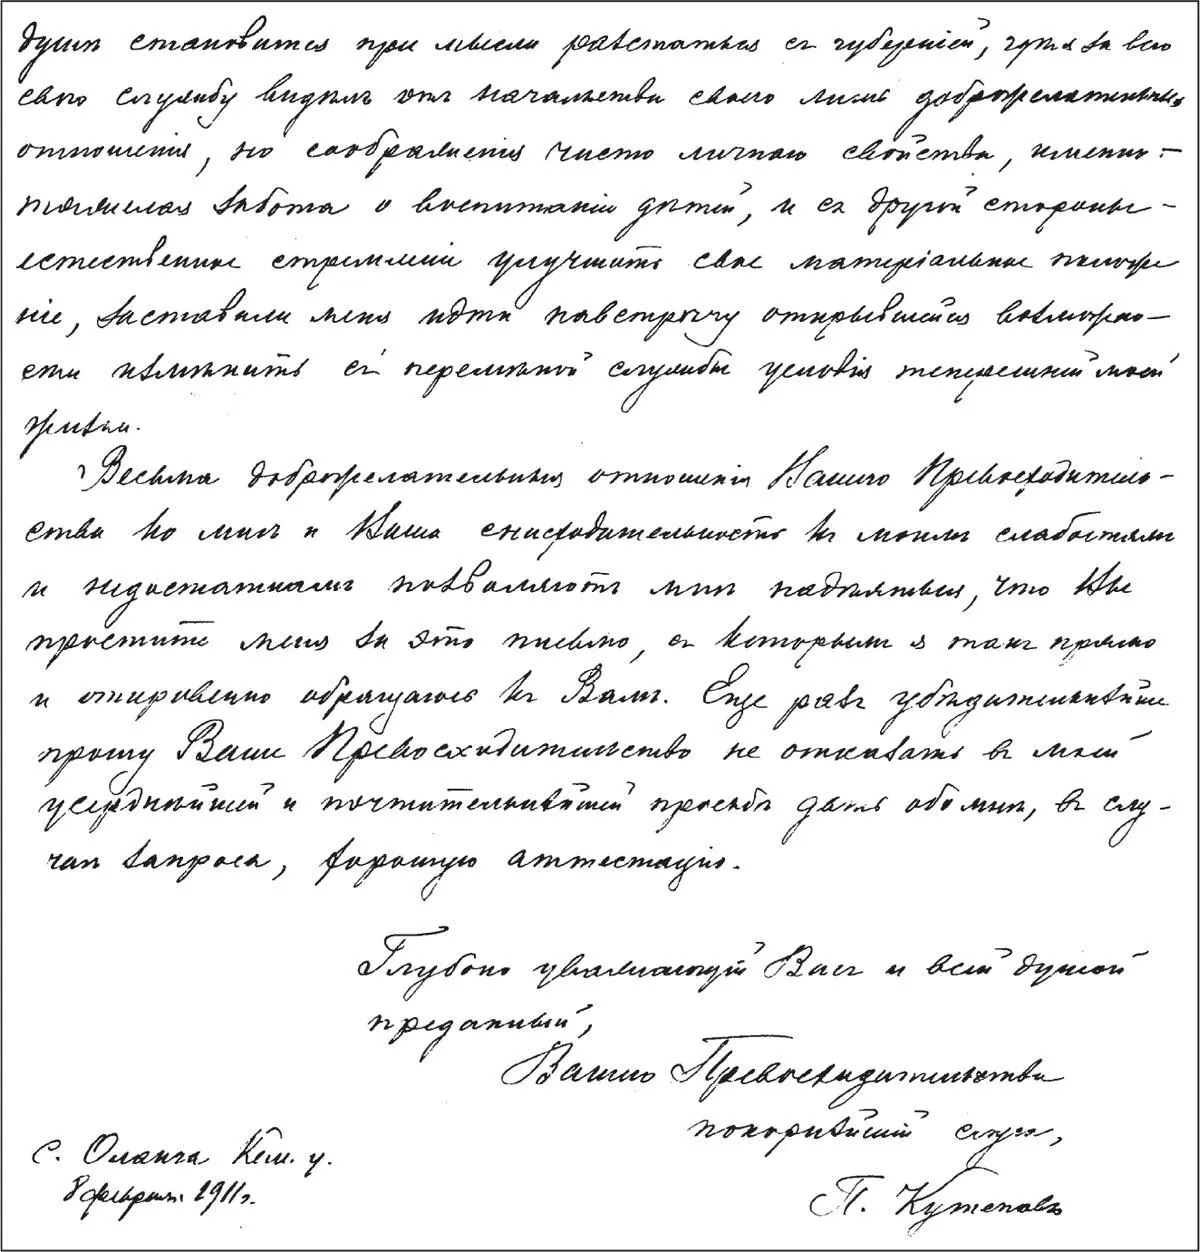 душѣ становится при мысли разстаться съ губерніей, гдѣ я за всю
свою службу видѣлъ отъ начальства своего лишь доброжелательныя
отношенія, но соображенія чисто личнаго свойства, именно:
тяжелая забота о воспитаніи дѣтей, и съ другой стороны –
естественное стремленіе улучшить свое матеріальное положе
ніе, заставили меня идти навстрѣчу открывшейся возможно–
сти измѣнить съ перемѣной службы условія теперешней моей
жизни.
Весьма доброжелательныя отношенія Вашего Превосходитель–
ства ко мнѣ и Ваша снисходительность къ моимъ слабостямъ
и недостаткамъ позволяютъ мнѣ надѣяться, что Вы
простите меня за это письмо, съ которымъ я такъ прямо
и откровенно обращаюсь къ Вамъ. Еще разъ убѣдительнѣйше
прошу Ваше Превосходительство не отказать въ моей
усерднѣйшей и почтительнѣйшей просьбѣ дать обо мнѣ, въ слу–
чаѣ запроса, хорошую аттестацію.
Глубоко уважающій Васъ и всей душой
преданный,
Вашего Превосходительства
покорнѣйшій слуга,
П. Кутеповъ
с. Оланга Кем. у.
8 февраля 1911 г.